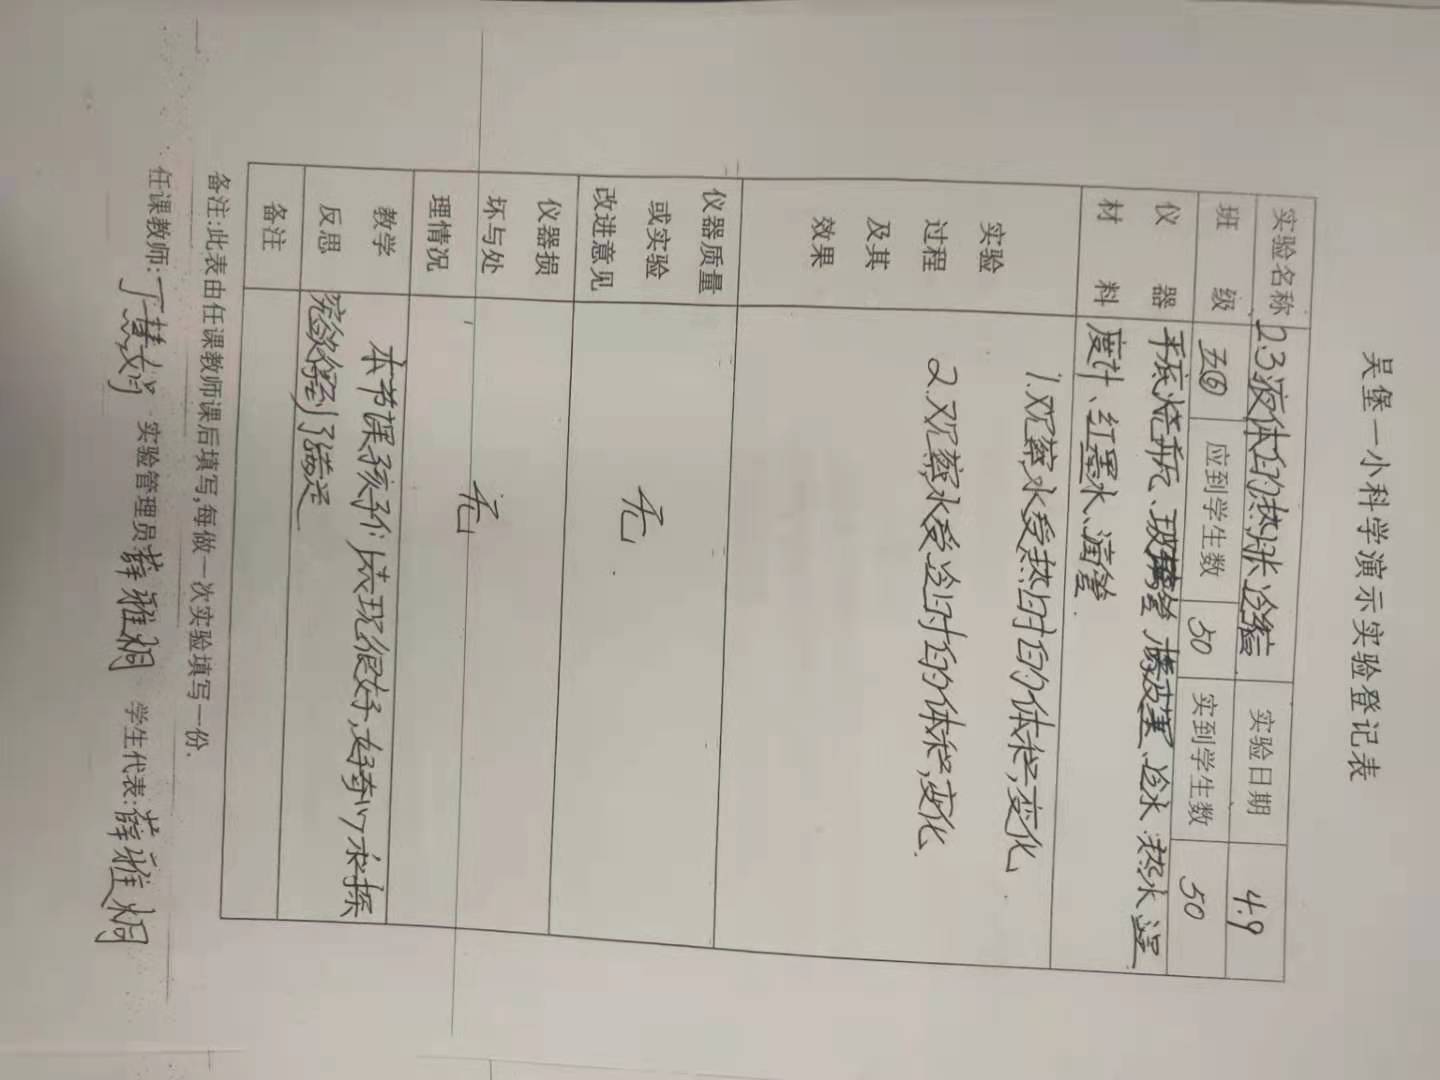 吴堡一小科学演示实验登记表
实验名称 23液体的热胀冷缩 实验日期 4.9
班级 五⑥ 应到学生数 50 实到学生数 50
仪器材料 平底烧瓶、玻璃管、橡皮塞、冷水、热水、温
度计、红墨水、滴管.
实验过程及其效果
1.观察水受热时的体积变化
2.观察水受冷时的体积变化.
仪器质量或实验改进意见 无.
仪器损坏与处理情况 无
教学反思 本节课孩子们表现很好,好奇心求探
究欲得到了满足
备注
备注:此表由任课教师课后填写,每做一次实验填写一份.
任课教师: 丁慧 实验管理员 薛雅桐 学生代表: 薛雅桐